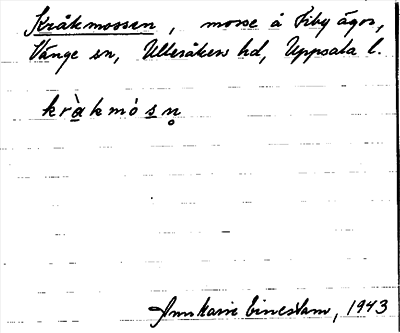 Kråkmossen, mosse å Fiby ägor,
Vänge sn, Ulleråkers hd, Uppsala l.
kràkmósn̥
Ann Marie
, 1943